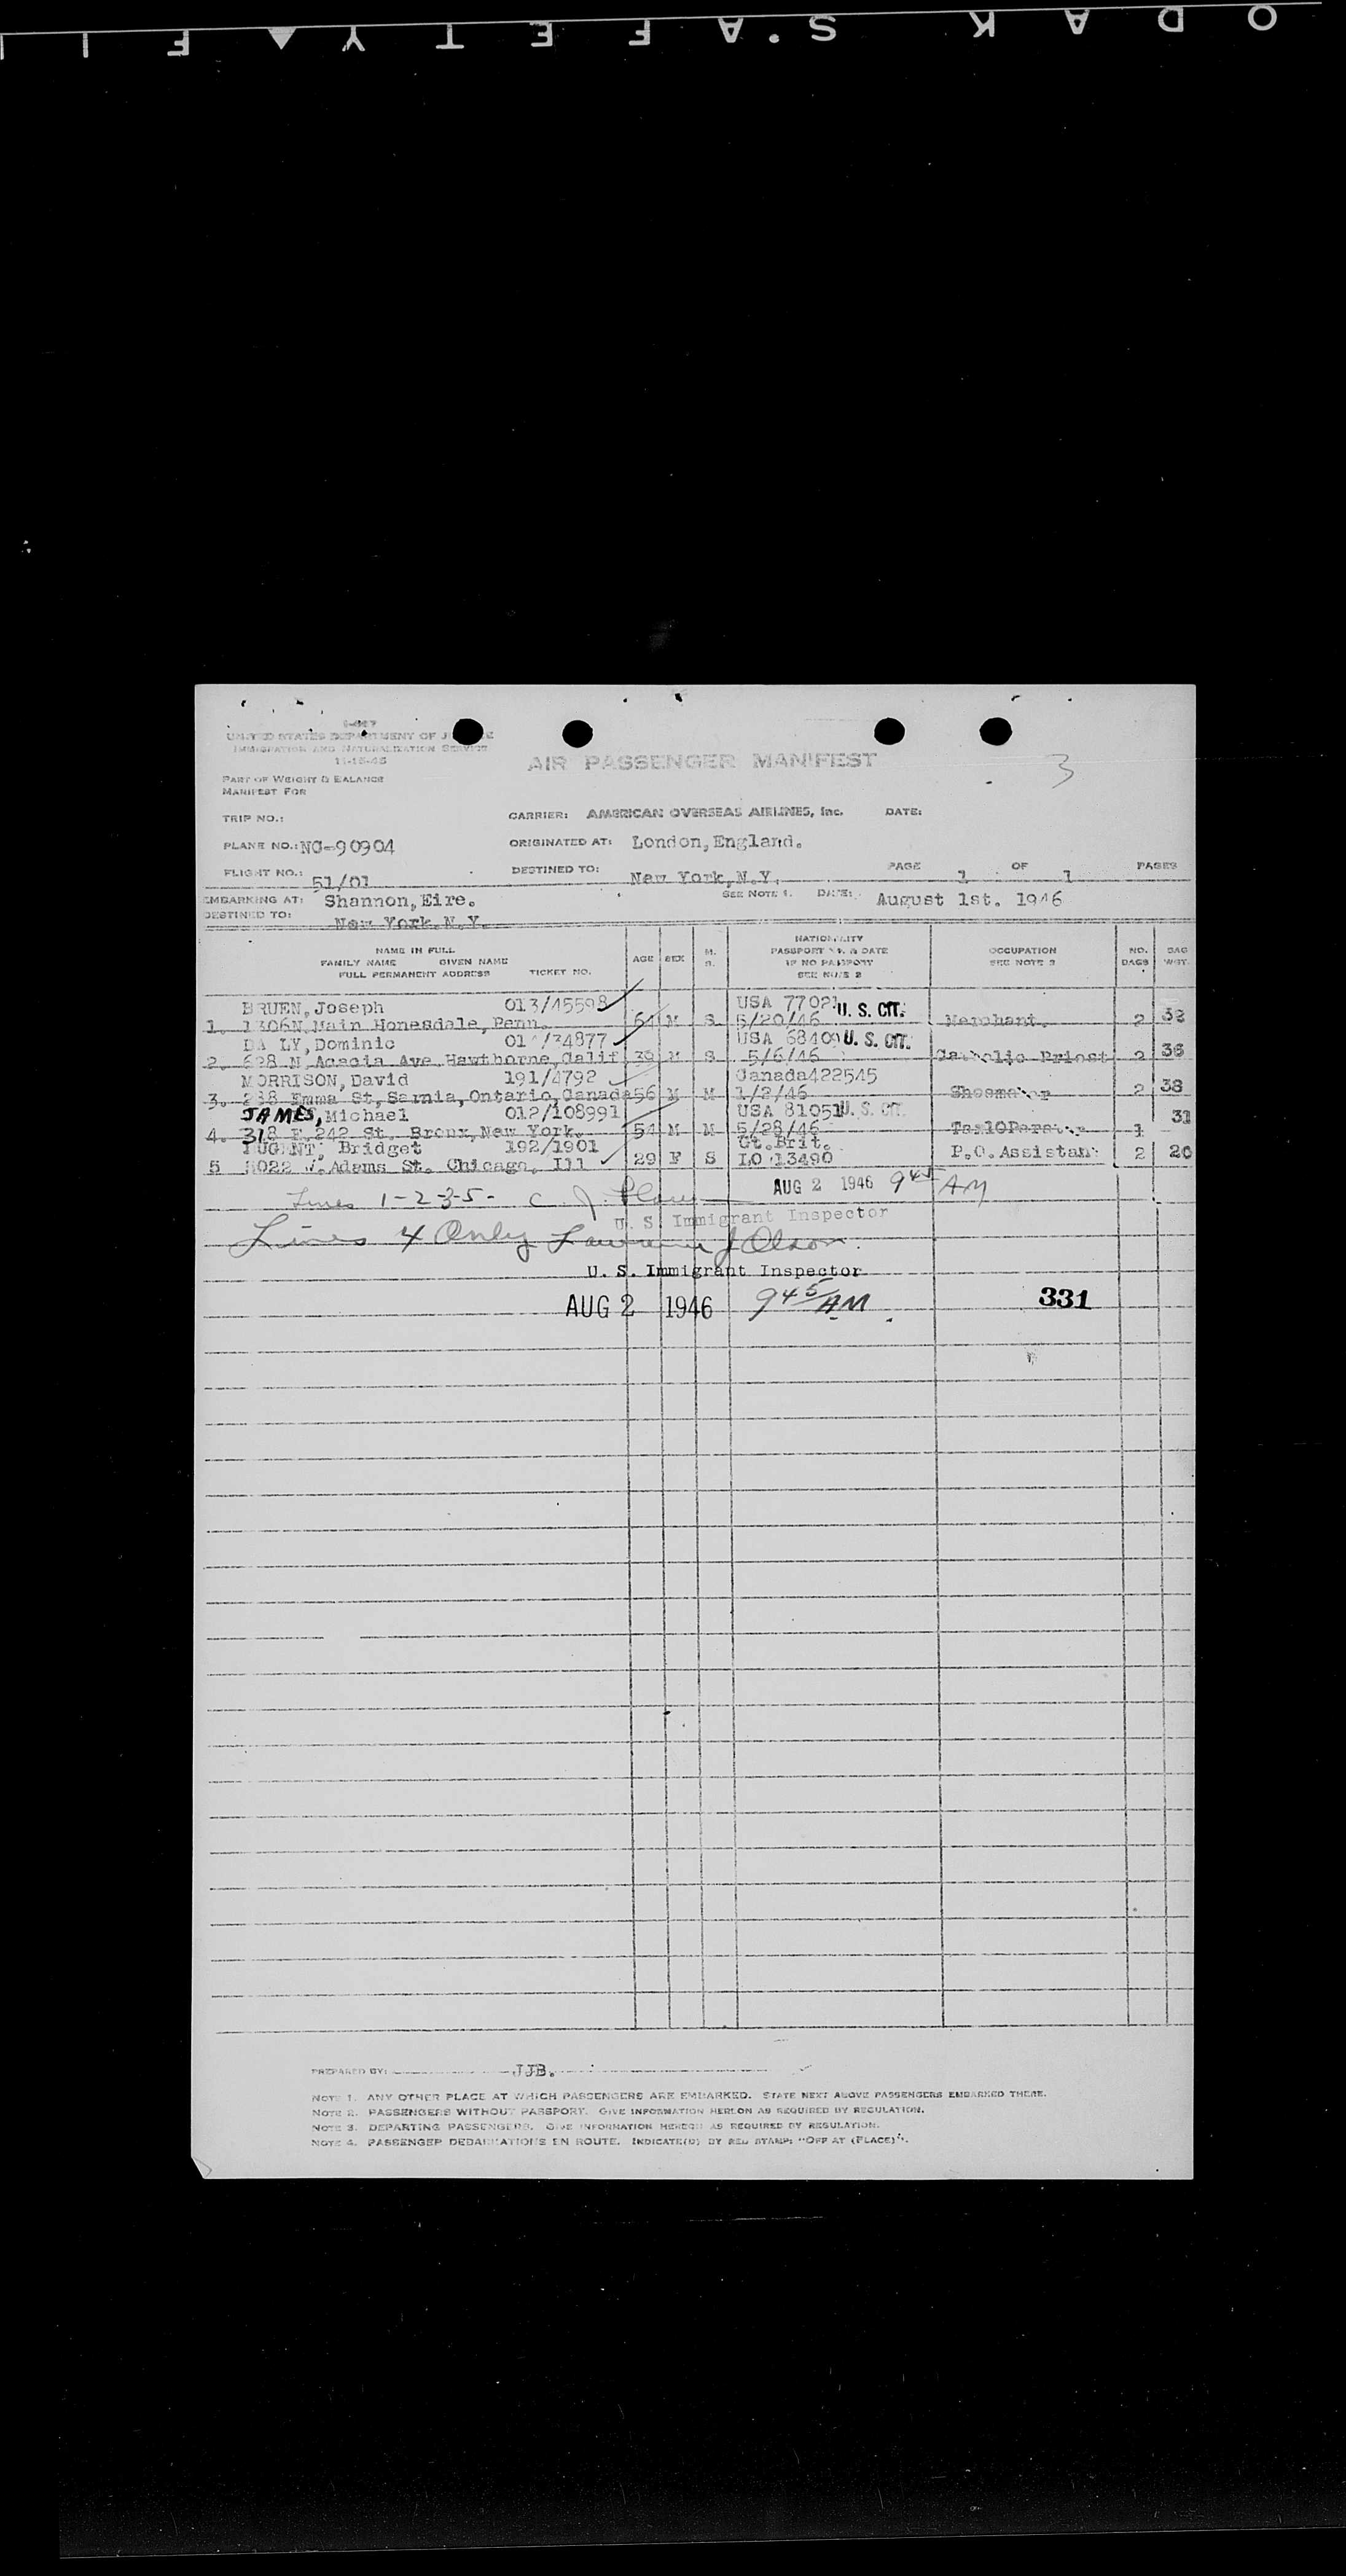 KODAK SAFETY FI
I-467
UNITED STATES DEPARTMENT OF JUSTICE
IMMIGRATION AND NATURALIZATION SERVICE
11-15-45
AIR PASSENGER MANIFEST
3
PART OF WEIGHT & BALANCE
MANIFEST FOR
TRIP NO.:
CARRIER: AMERICAN OVERSEAS AIRLINES, Inc. DATE:
PLANE NO.: NC-90904
ORIGINATED AT: London, England.
FLIGHT NO.: 51/01
DESTINED TO: New York, N.Y. PAGE 1 OF 1 PAGES
EMBARKING AT: Shannon, Eire. SEE NOTE 1. DATE: August 1st. 1946
DESTINED TO: New York, N.Y.
NAME IN FULL
FAMILY NAME GIVEN NAME
FULL PERMANENT ADDRESS TICKET NO. AGE SEX M. S. NATIONALITY PASSPORT NO. & DATE IF NO PASSPORT SEE NOTE 2 OCCUPATION SEE NOTE 3 NO. BAGS BAG WGT.
BRUEN, Joseph 013/45598 USA 77021 U. S. CIT.
1. 1306N, Main Honesdale, Penn. 64 M S 5/20/46 Merchant. 2 32
DA LY, Dominic /34877 USA 68409 U. S. CIT.
2. 628 N, Acacia Ave, Hawthorne, Calif 39 M S 5/6/46 Catholic Priest 2 36
MORRISON, David 191/4792 Canada 422545
3. 238 Emma St, Sarnia, Ontario, Canada 56 M M 1/2/46 Shoemaker 2 38
JAMES, Michael 012/108991 USA 81051 U. S. CIT.
4. 318 E. 242 St. Bronx, New York. 54 M M 5/28/46 1 31
NUGENT, Bridget 192/1901 Gt. Brit.
5 5022 W. Adams St. Chicago, Ill 29 F S LO 13490 P.O. Assistant 2 20
Lines 1-2-3-5- C. J. AUG 2 1946 9 45 AM
U. S. Immigrant Inspector
Lines 4 Only Lawrence J Olson
U. S. Immigrant Inspector
AUG 2 1946 9 45 AM 331
PREPARED BY: JJB.
NOTE 1. ANY OTHER PLACE AT WHICH PASSENGERS ARE EMBARKED. STATE NEXT ABOVE PASSENGERS EMBARKED THERE.
NOTE 2. PASSENGERS WITHOUT PASSPORT. GIVE INFORMATION HEREON AS REQUIRED BY REGULATION.
NOTE 3. DEPARTING PASSENGERS. GIVE INFORMATION HEREON AS REQUIRED BY REGULATION.
NOTE 4. PASSENGER DEBARKATIONS EN ROUTE. INDICATE(D) BY RED STAMP: "OFF AT (PLACE)".